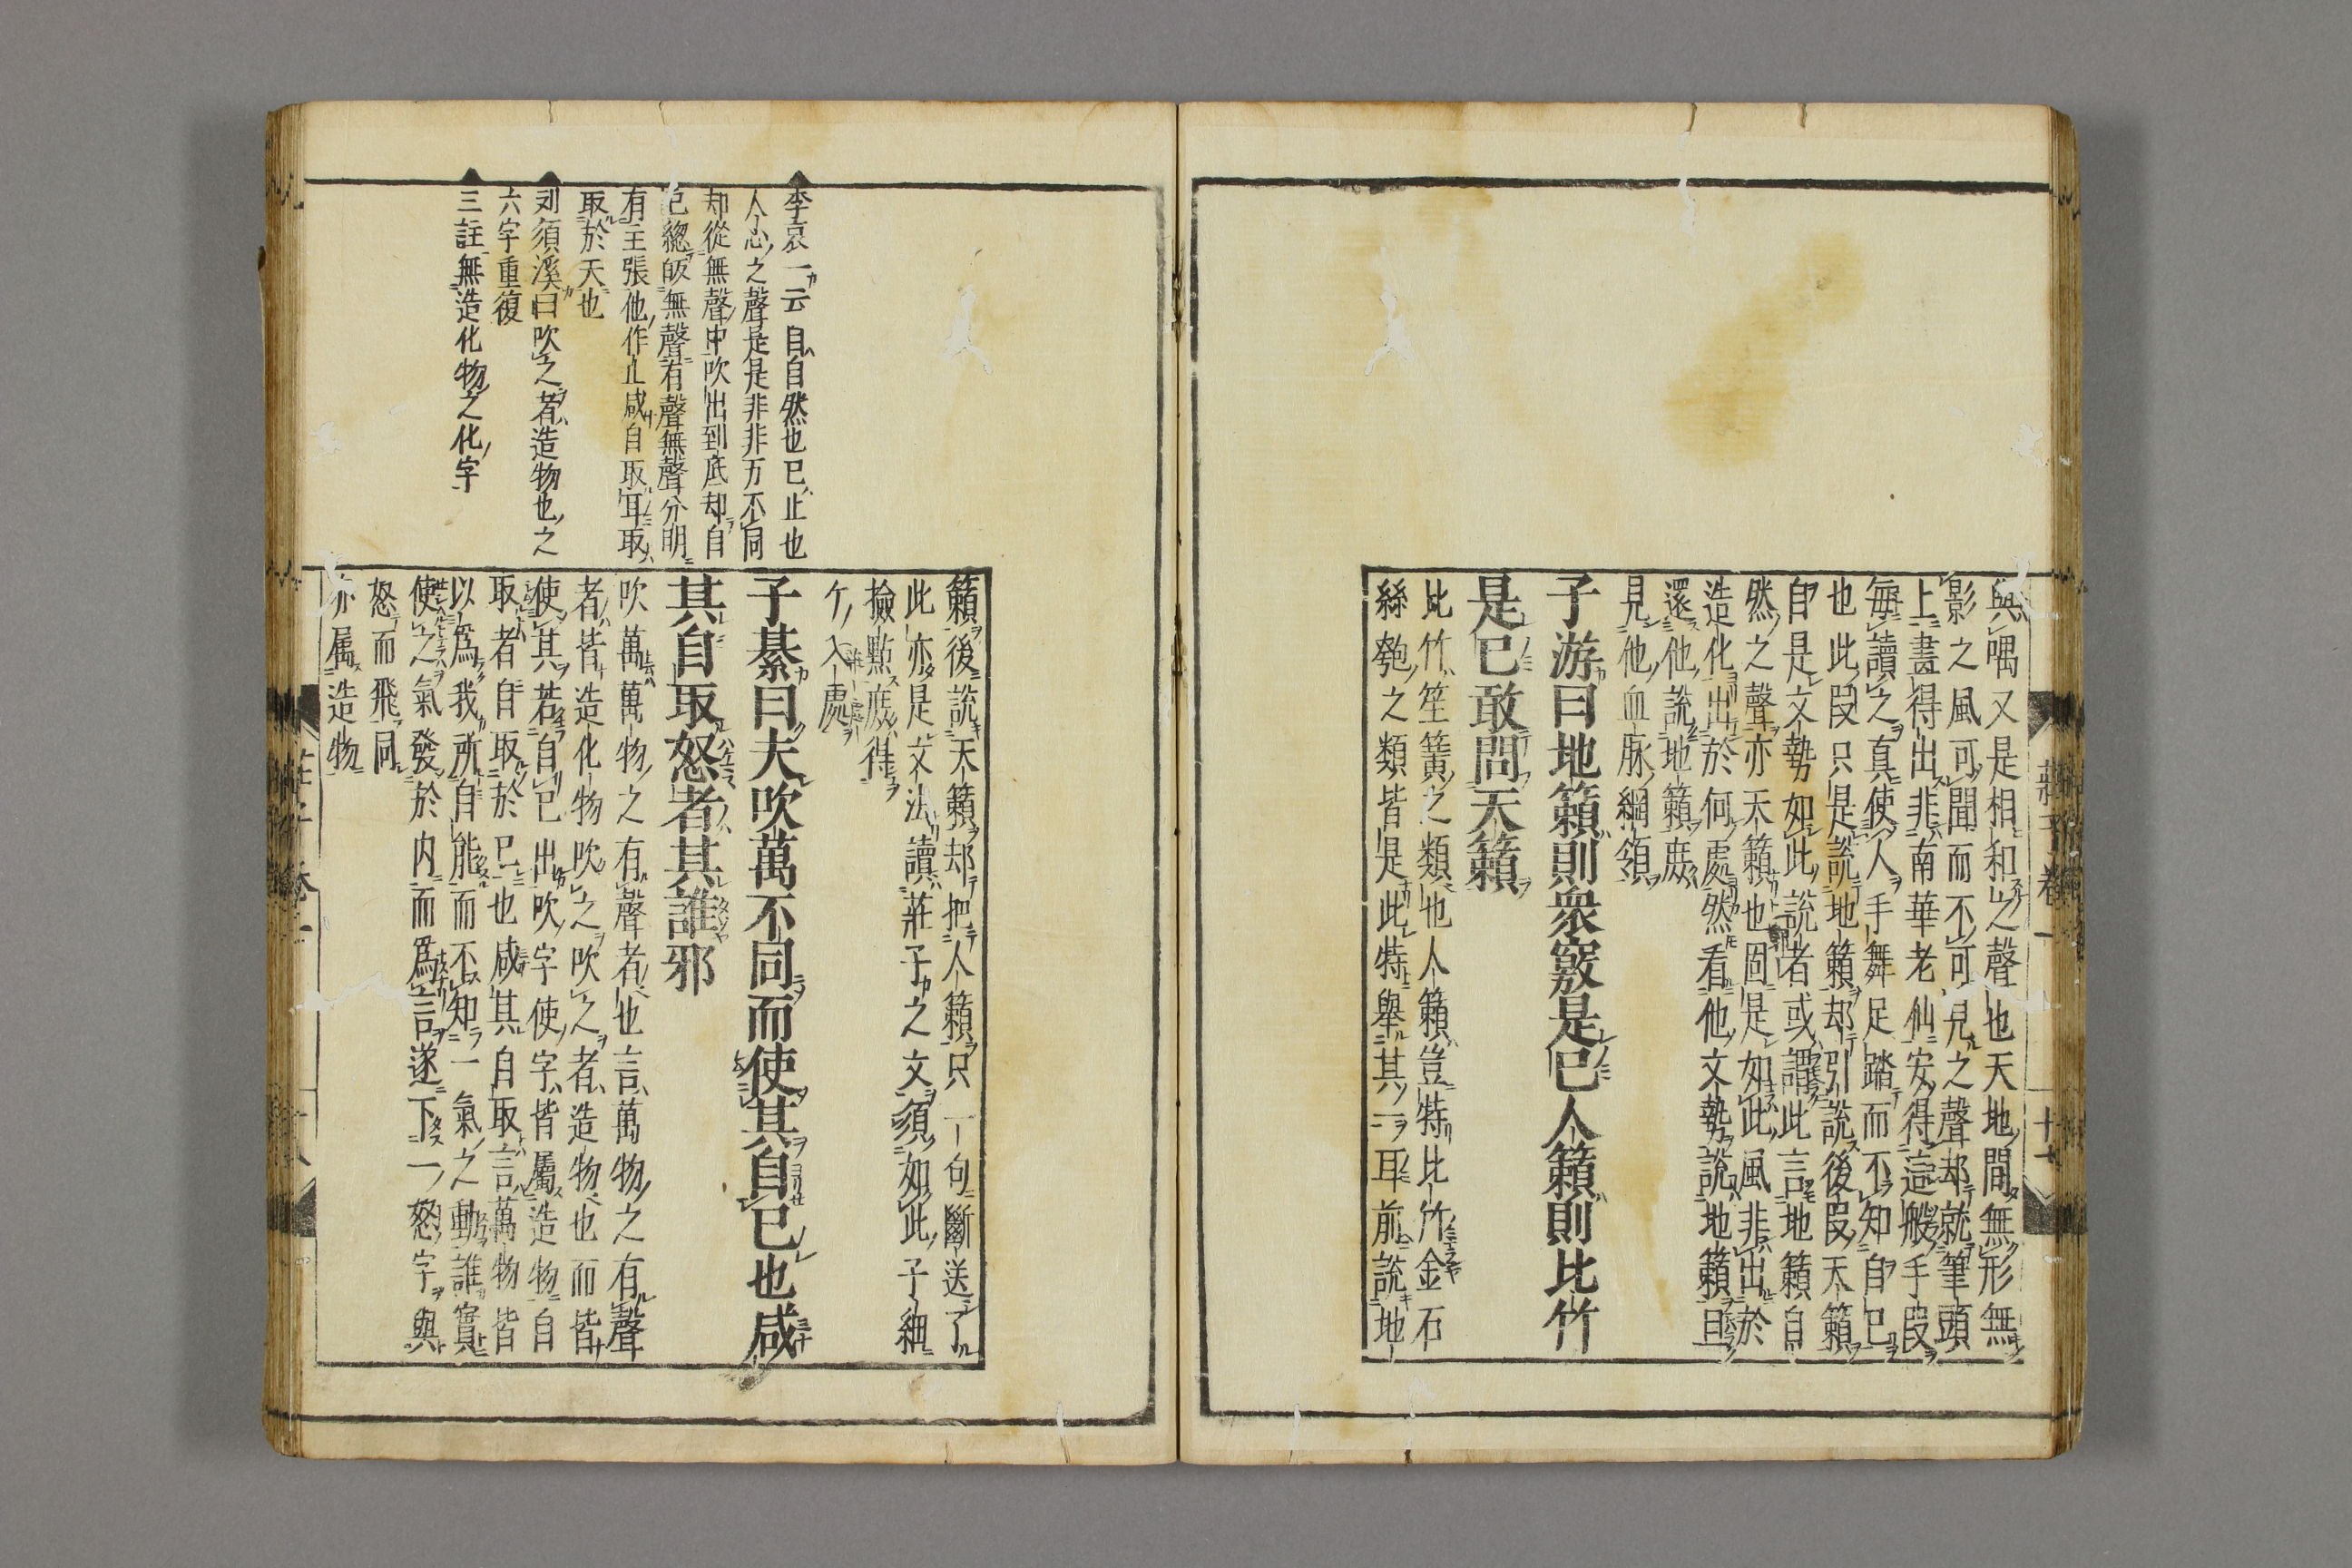 與喁又是相和之聲也天地間無形無
影之風可聞而不可見之聲却就筆頭
上畫得出非南華老仙安得這般手段
每讀之真使人手舞足踏而不知自已
也此段只是說地籟却引說後段天籟
自是文勢如此說者或謂此言地籟自
然之聲亦天籟也固是如此風非出於
造化出於何處然看他文勢說地籟且
還他說地籟庶
見他血脉綱領
子游曰地籟則衆竅是已人籟則比竹
是已敢問天籟
比竹笙簧之類也人籟豈特比竹金石
絲匏之類皆是此特舉其一耳前說地
莊子卷一
十七
籟後說天籟却把人籟只一句斷送了
此亦是文法讀莊子之文須如此子細
撿點庶得
个入處
子綦曰夫吹萬不同而使其自已也咸
其自取怒者其誰邪
吹萬萬物之有聲者也言萬物之有聲
者皆造化物吹之吹之者造物也而皆
使其若自已出吹字使字皆屬造物自
取者自取於已也咸其自取言萬物皆
以為我所自能而不知一氣之動誰實
使之氣發於内而為言遂下一怒字與
怒而飛同
亦属造物
李衷一云自自然也已止也
人心之聲是是非非万不同
却從無聲中吹出到底却自
已緫皈無聲有聲無聲分明
有主張他作止咸自取耳取
取於天也
刘須溪曰吹之者造物也之
六字重復
三註無造化物之化字